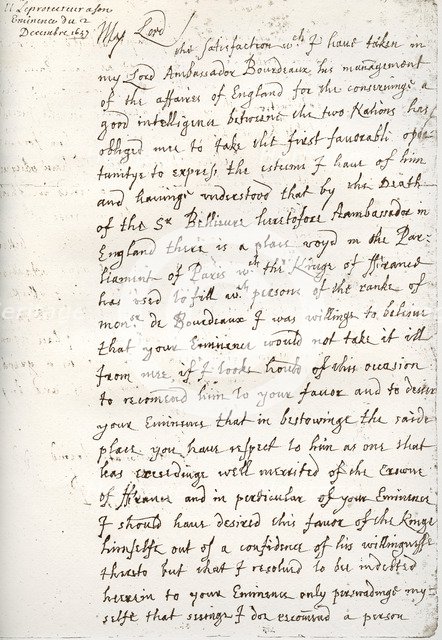 Il Protecteur a son
Eminence du 2
Decembre 1657
My Lord
the satisfaction wch I have taken in
my Lord Ambassador Bourdeaux his management
of the affaires of England for the conservinge a
good intelligence betweene the two Nations has
obliged mee to take the first favorable opor
tunitye to express the esteeme I have of him
and havinge understood that by the Death
of the Sr Bellieure heretofore Ambassador in
England there is a place voyd in the Par
liament of Paris wch the Kinge of ffrance
has used to fill wth persons of the ranke of
monsr de Bourdeaux I was willinge to believe
that your Eminence would not take it ill
from mee if I tooke hould of this occasion
to recomend him to your favor and to desier
your Eminence that in bestowinge the saide
place you have respect to him as one that
has exceedinge well merrited of the Crowne
of ffrance and in perticular of your Eminence
I should have desired this favor of the Kinge
himselfe out of a confidence of his willingnesse
thereto but that I resolved to bee indebted
herein to your Eminence only perswadinge my
selfe that seinge I doe recomend a person